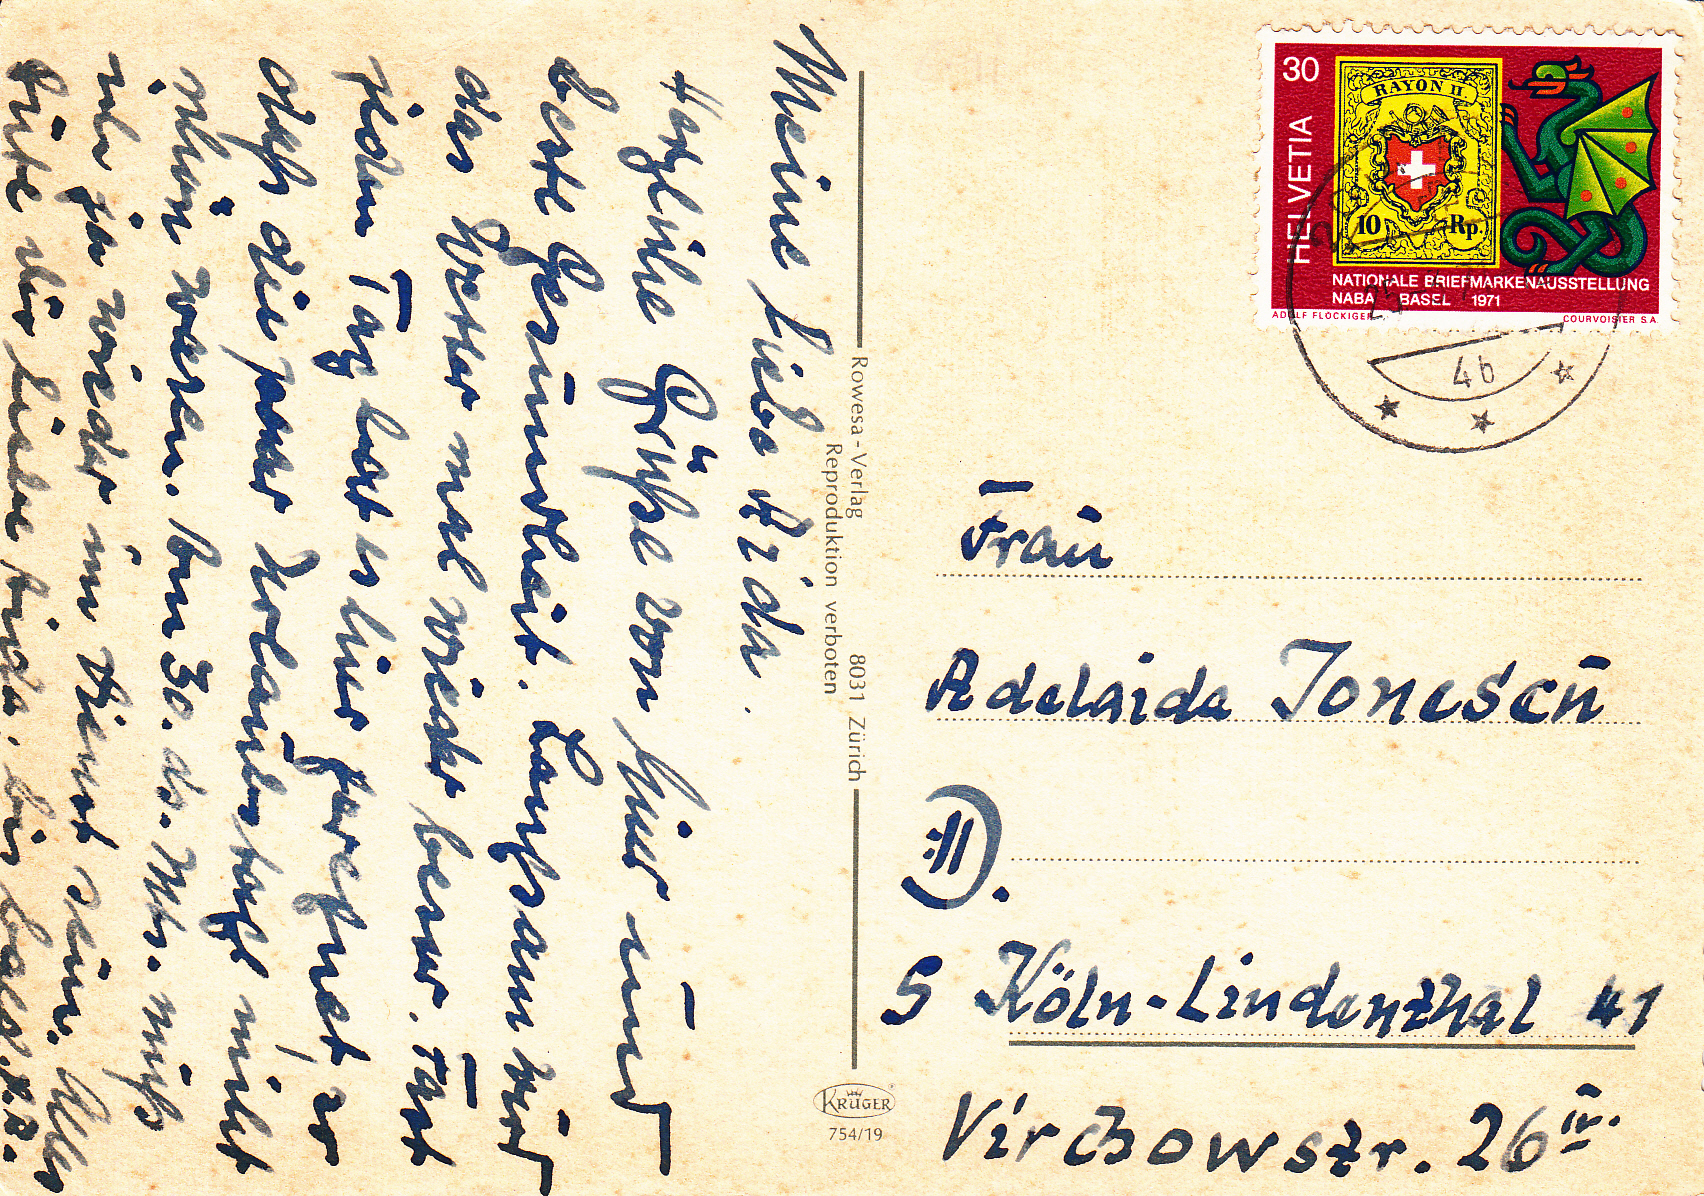 Meine liebe Aida.
Herzliche Grüße von hier und
beste Gesundheit. Langsam wird
das Wetter mal wieder besser. Fast
jeden Tag hat es hier geregnet, so
daß die paar Urlaubstage nicht
schön waren. Am 30. ds. Mts. muß
ich ja wieder im Dienst sein. Alles
Gute Dir liebe Aida. bis bald.
Rowesa - Verlag 8031 Zürich
Reproduktion verboten
KRÜGER
754/19
30
HELVETIA
RAYON II
10 Rp.
NATIONALE BRIEFMARKENAUSSTELLUNG
NABA BASEL 1971
ADOLF FLÜCKIGER COURVOISIER S.A.
4b
Frau
Adelaida Jonescu
5 Köln-Lindenthal 41
Virchowstr. 26 IV.